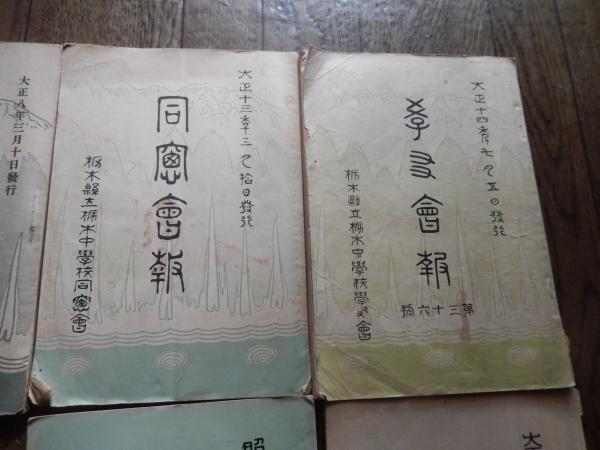 大正十四年七月五日發行
學友會報
第三十六號
栃木縣立栃木中學校學友會
大正十三年三月拾日發行
同窓會報
栃木縣立栃木中學校同窓會
大正八年三月十日發行
昭
大